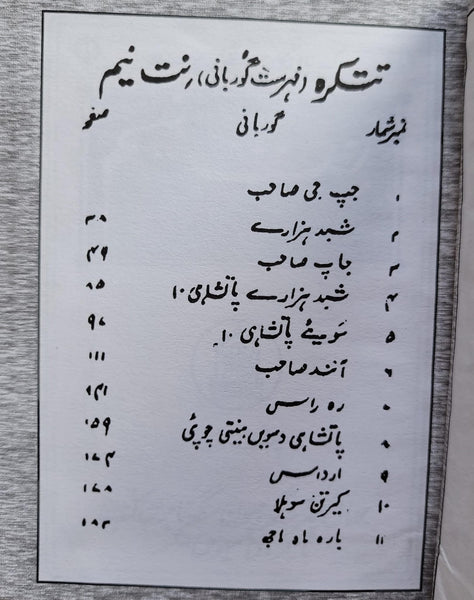 تتکرہ (فہرست گوربانی) نِت نیم
نمبرشمار گوربانی صفحہ
۱ جپ جی صاحب
۲ شبد ہزارے ۳۸
۳ جاپ صاحب ۴۹
۴ شبد ہزارے پاتشاہی ۱۰ ۸۵
۵ سَویئے پاتشاہی ۱۰۔ ۹۷
۶ آنند صاحب ۱۱۱
۷ رہ راس ۱۴۱
۸ پاتشاہی دسویں بینتی چوپئی ۱۵۹
۹ ارداس ۱۷۴
۱۰ کیرتن سوہلا ۱۷۸
۱۱ بارہ ماہ ماجھ ۱۸۳